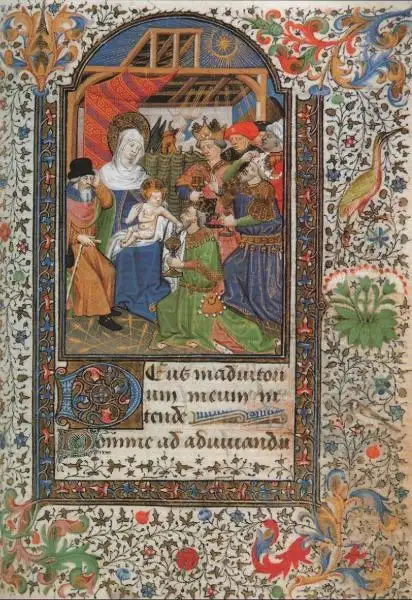 Deus in adiutori
um meum in
tende
Domine ad adiuuandu